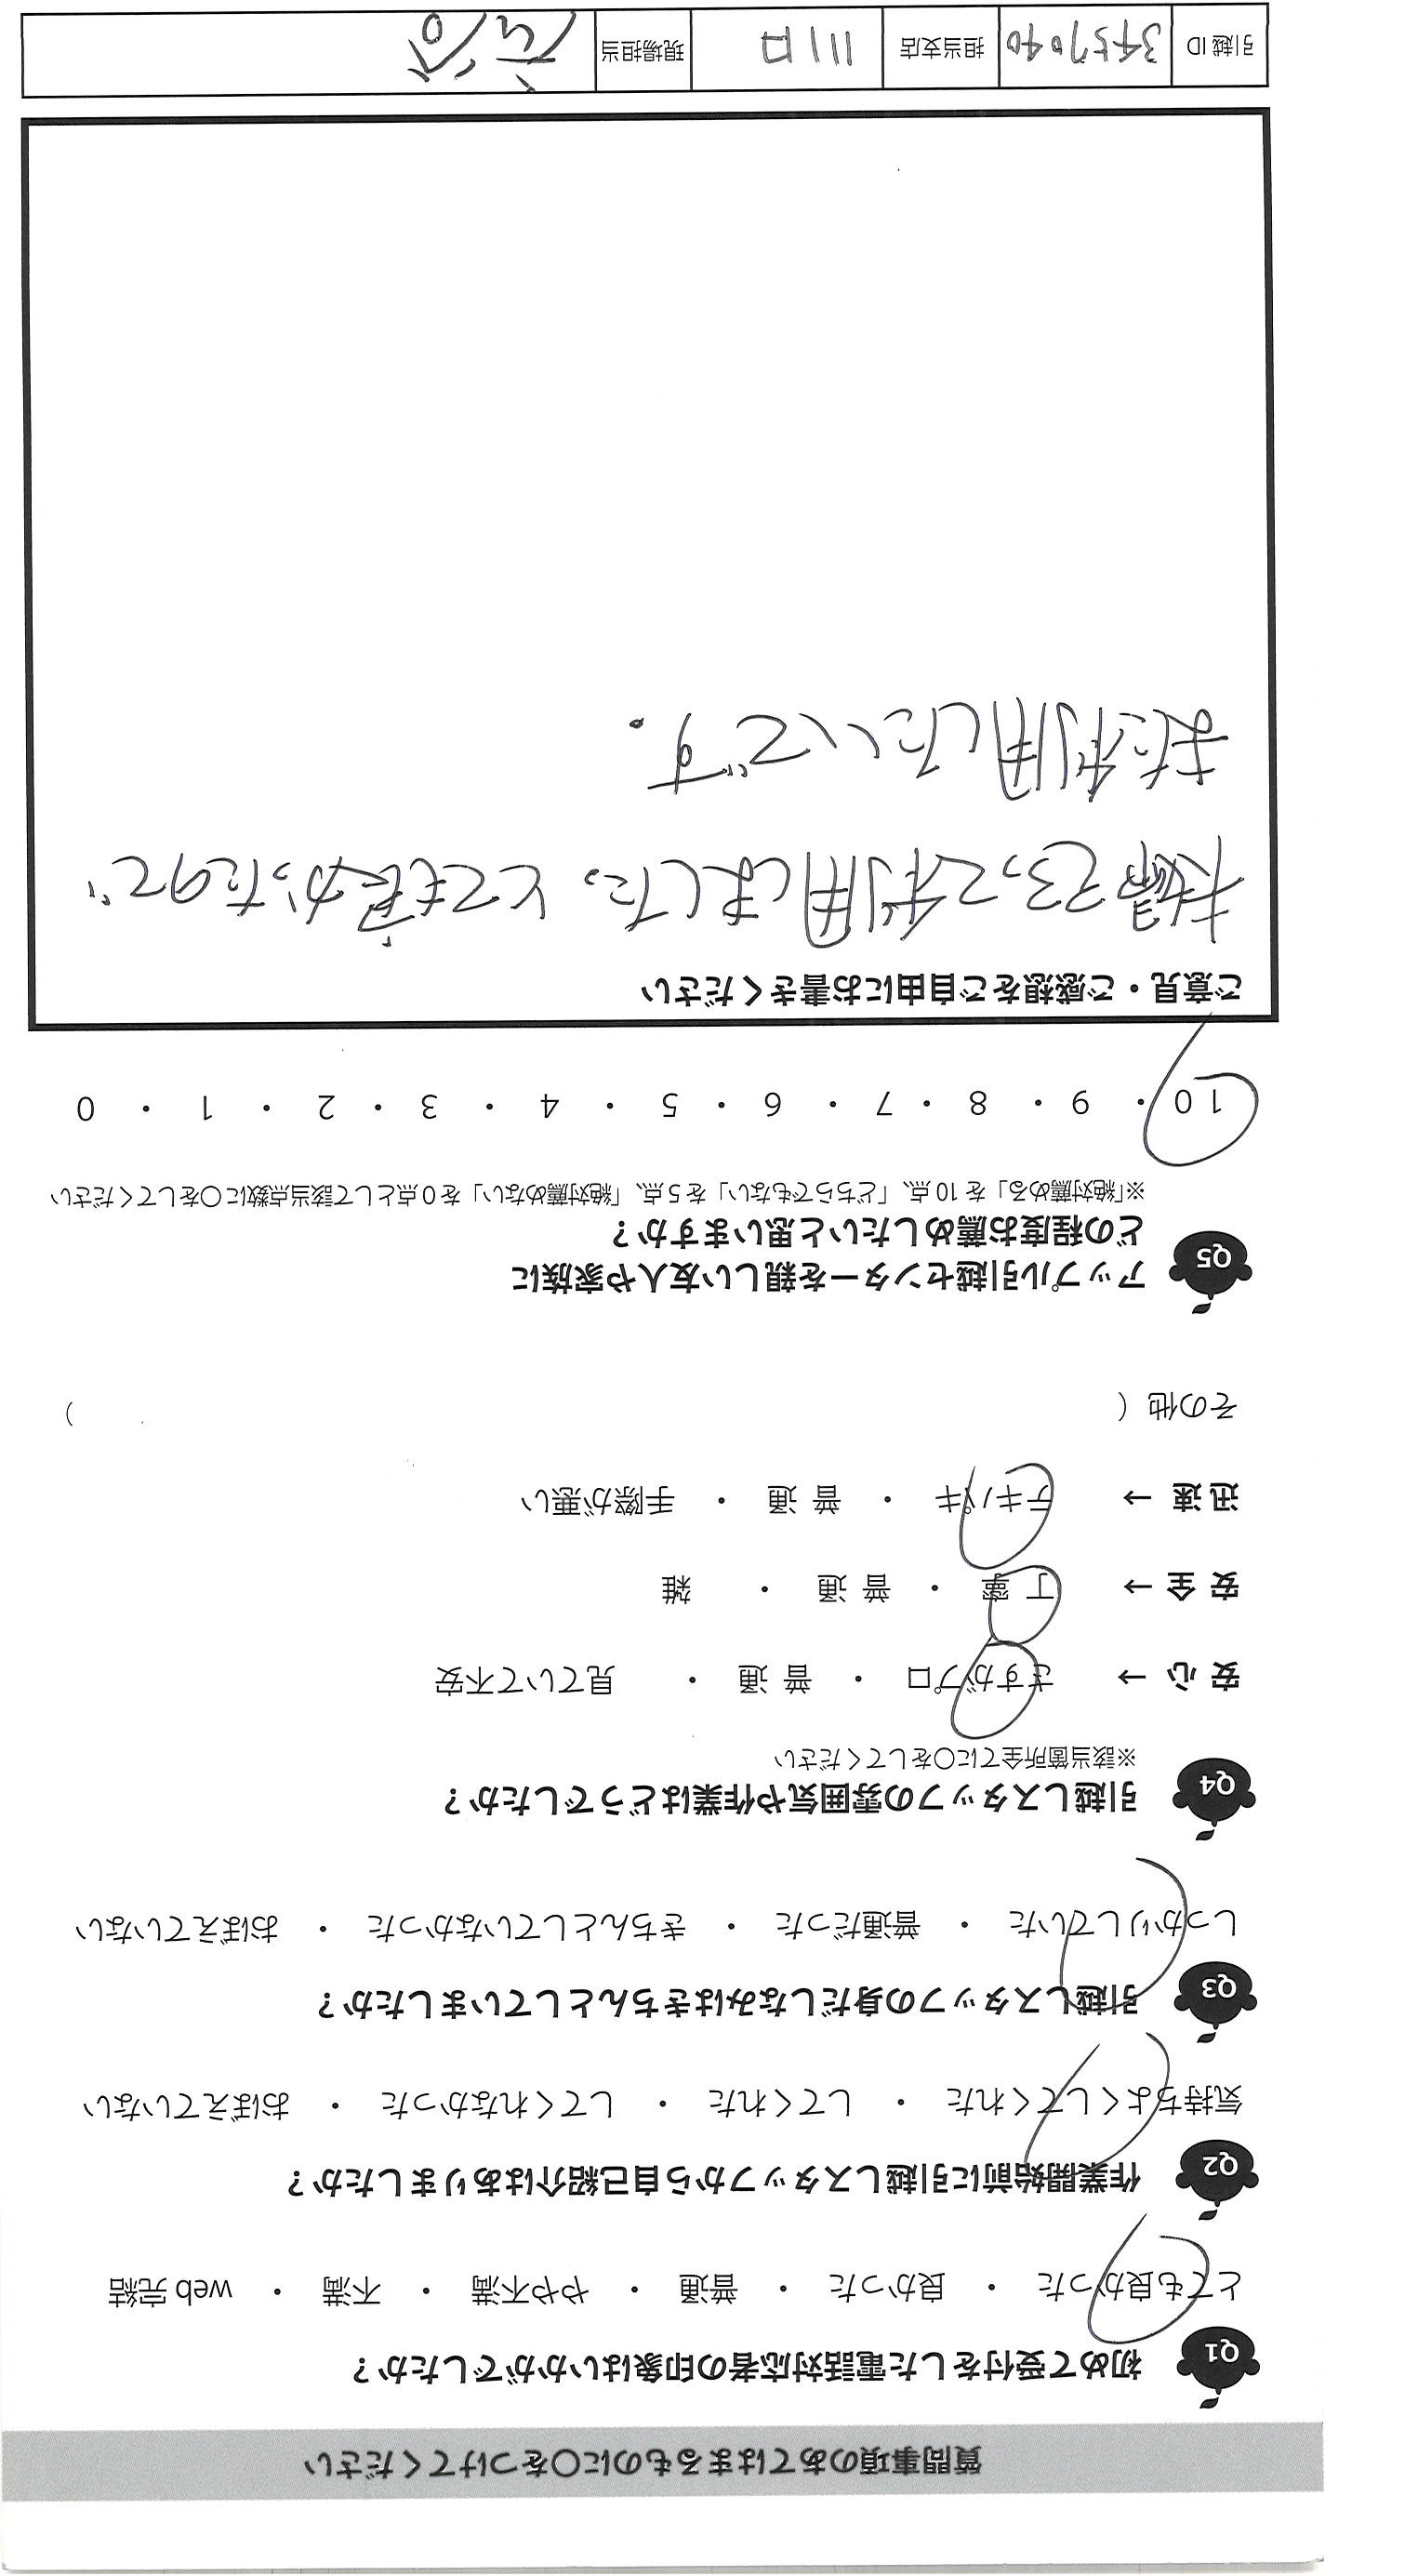 質問事項のあてはまるものに○をつけてください
Q1 初めて受付をした電話対応者の印象はいかがでしたか？
とても良かった ・ 良かった ・ 普通 ・ やや不満 ・ 不満 ・ web完結
Q2 作業開始前に引越しスタッフから自己紹介はありましたか？
気持ちよくしてくれた ・ してくれた ・ してくれなかった ・ おぼえていない
Q3 引越しスタッフの身だしなみはきちんとしていましたか？
しっかりしていた ・ 普通だった ・ きちんとしていなかった ・ おぼえていない
Q4 引越しスタッフの雰囲気や作業はどうでしたか？
※該当箇所全てに○をしてください
安心 → さすがプロ ・ 普通 ・ 見ていて不安
安全 → 丁寧 ・ 普通 ・ 雑
迅速 → テキパキ ・ 普通 ・ 手際が悪い
その他（ ）
Q5 アップル引越センターを親しい友人や家族に
どの程度お薦めしたいと思いますか？
※「絶対薦める」を10点、「どちらでもない」を5点、「絶対薦めない」を0点として該当点数に○をしてください
10 ・ 9 ・ 8 ・ 7 ・ 6 ・ 5 ・ 4 ・ 3 ・ 2 ・ 1 ・ 0
ご意見・ご感想をご自由にお書きください
夫婦そろって利用しました。とても良かったので
また利用したいです。
引越ID 3457040 担当支店 川口 現場担当